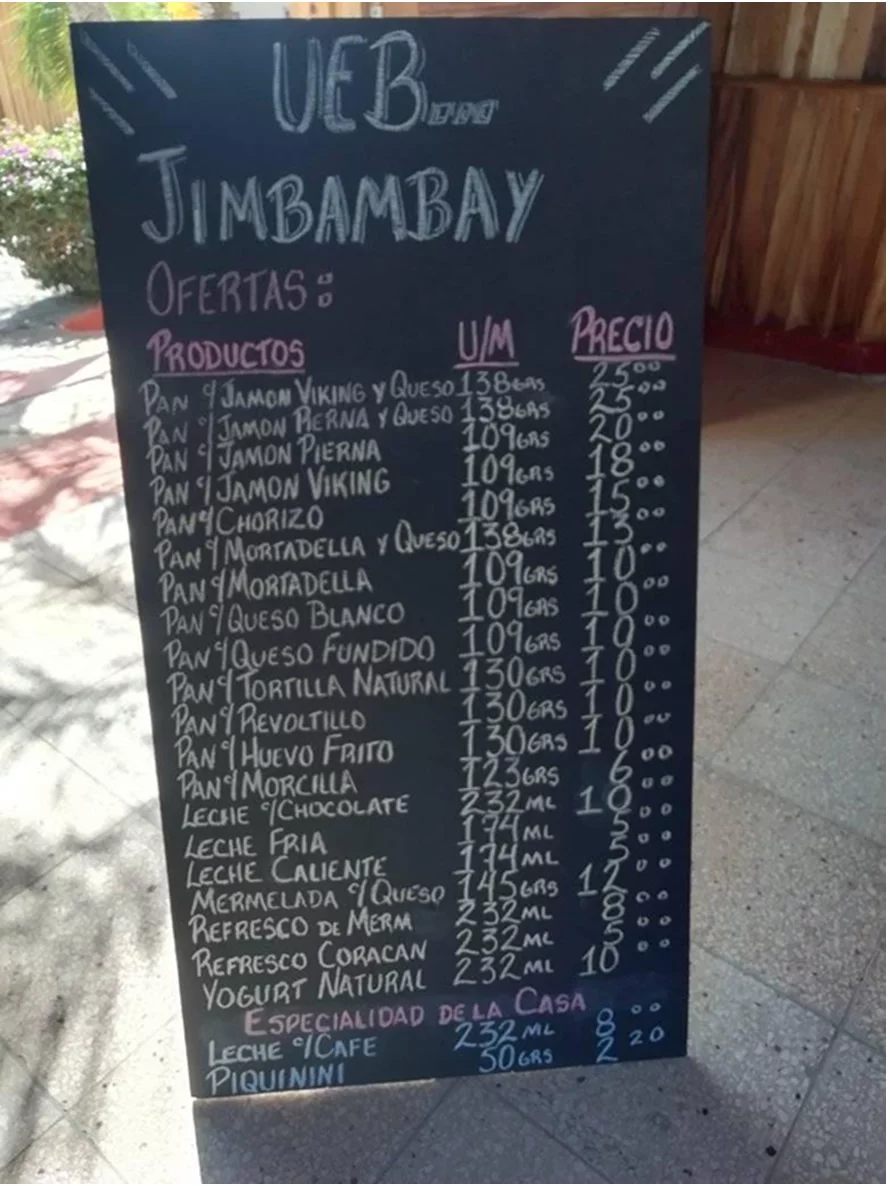 UEB...
JIMBAMBAY
OFERTAS:
PRODUCTOS U/M PRECIO
PAN c/JAMON VIKING Y QUESO 138GRS 25.00
PAN c/JAMON PIERNA Y QUESO 138GRS 25.00
PAN c/JAMON PIERNA 109GRS 20.00
PAN c/JAMON VIKING 109GRS 18.00
PAN c/CHORIZO 109GRS 15.00
PAN c/MORTADELLA Y QUESO 138GRS 13.00
PAN c/MORTADELLA 109GRS 10.00
PAN c/QUESO BLANCO 109GRS 10.00
PAN c/QUESO FUNDIDO 109GRS 10.00
PAN c/TORTILLA NATURAL 130GRS 10.00
PAN c/REVOLTILLO 130GRS 10.00
PAN c/HUEVO FRITO 130GRS 10.00
PAN c/MORCILLA 123GRS 6.00
LECHE c/CHOCOLATE 232ML 10.00
LECHE FRIA 174ML 5.00
LECHE CALIENTE 174ML 5.00
MERMELADA c/QUESO 145GRS 12.00
REFRESCO DE MERM 232ML 8.00
REFRESCO CORACAN 232ML 5.00
YOGURT NATURAL 232ML 10.00
ESPECIALIDAD DE LA CASA
LECHE c/CAFE 232ML 8.00
PIQUININI 50GRS 2.20